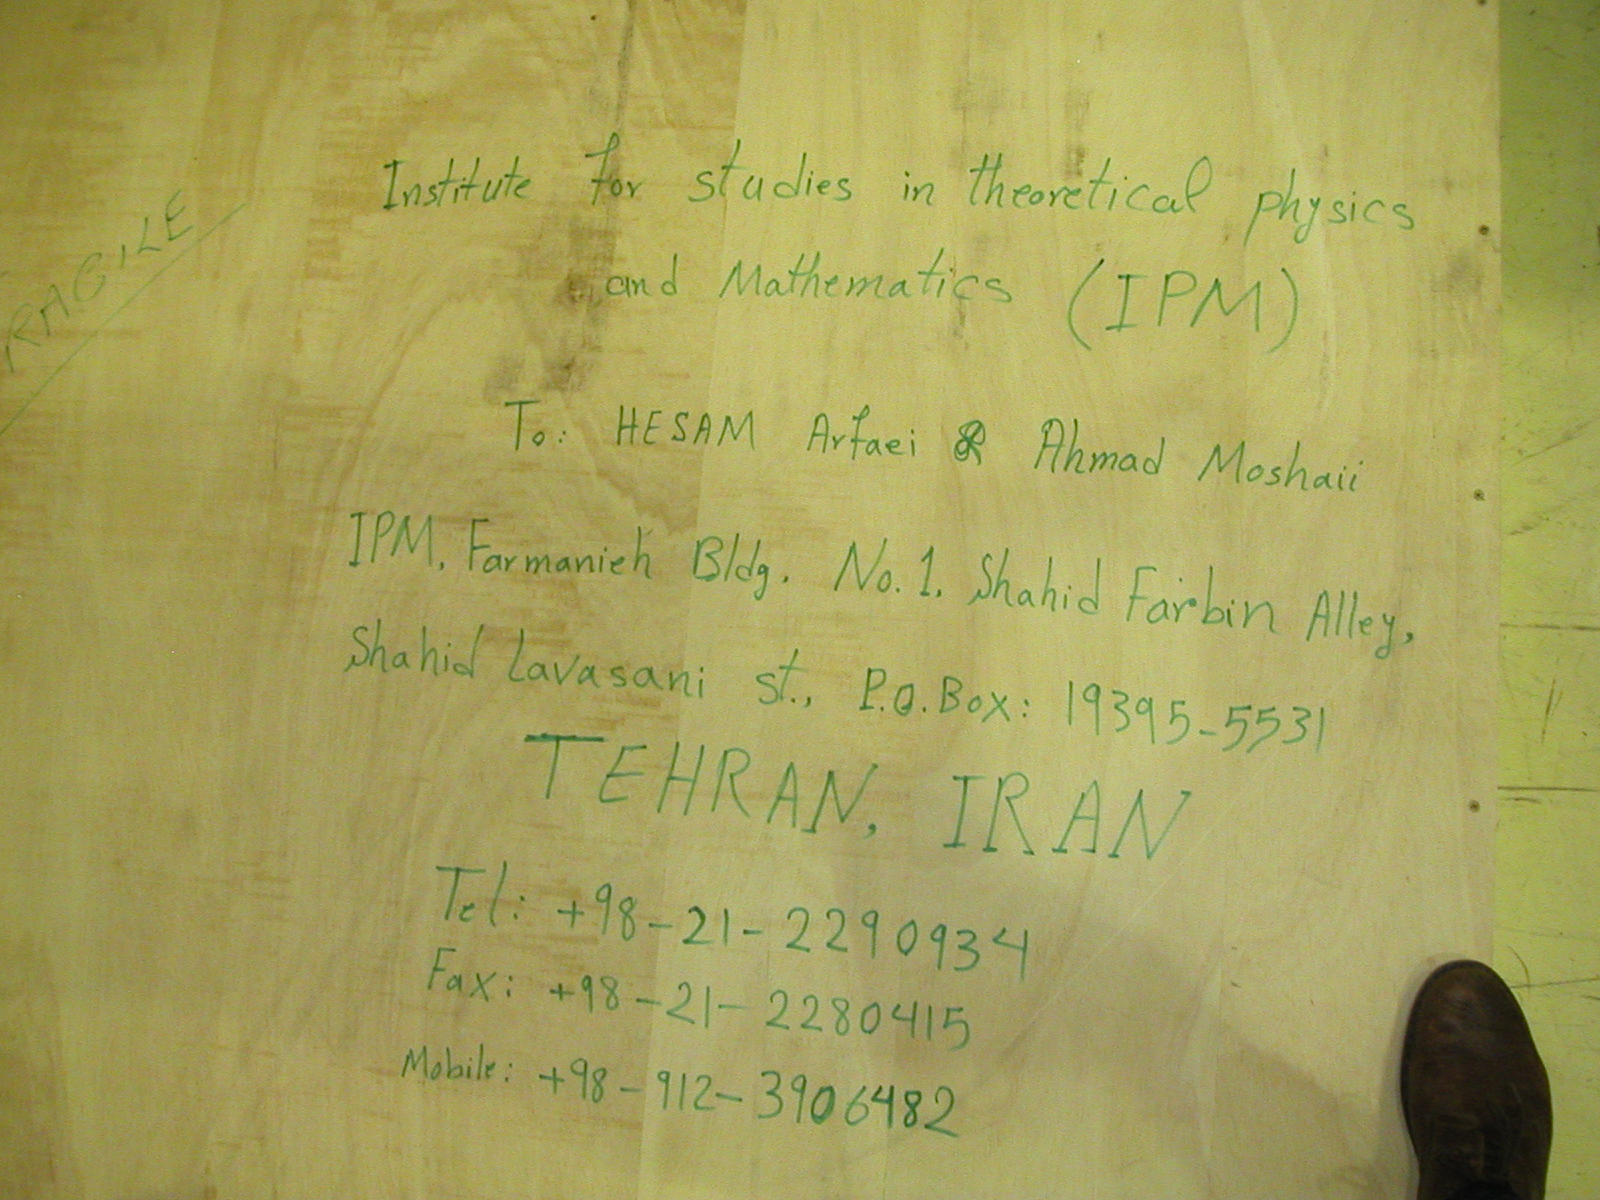 Institute for studies in theoretical physics
and Mathematics (IPM)
RAGILE
To: HESAM Arfaei & Ahmad Moshaii
IPM, Farmanieh Bldg. No.1, Shahid Farbin Alley,
Shahid Lavasani st., P.O.Box: 19395-5531
TEHRAN, IRAN
Tel: +98-21-2290934
Fax: +98-21-2280415
Mobile: +98-912-3906482